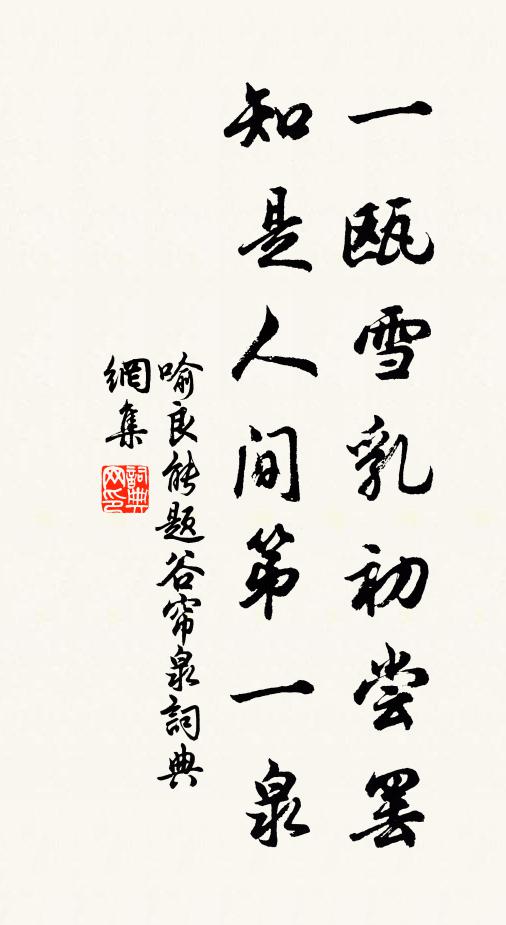 一瓯雪乳初尝罢
知是人间第一泉
喻良能题谷帘泉詞典
網集
詞典
网印